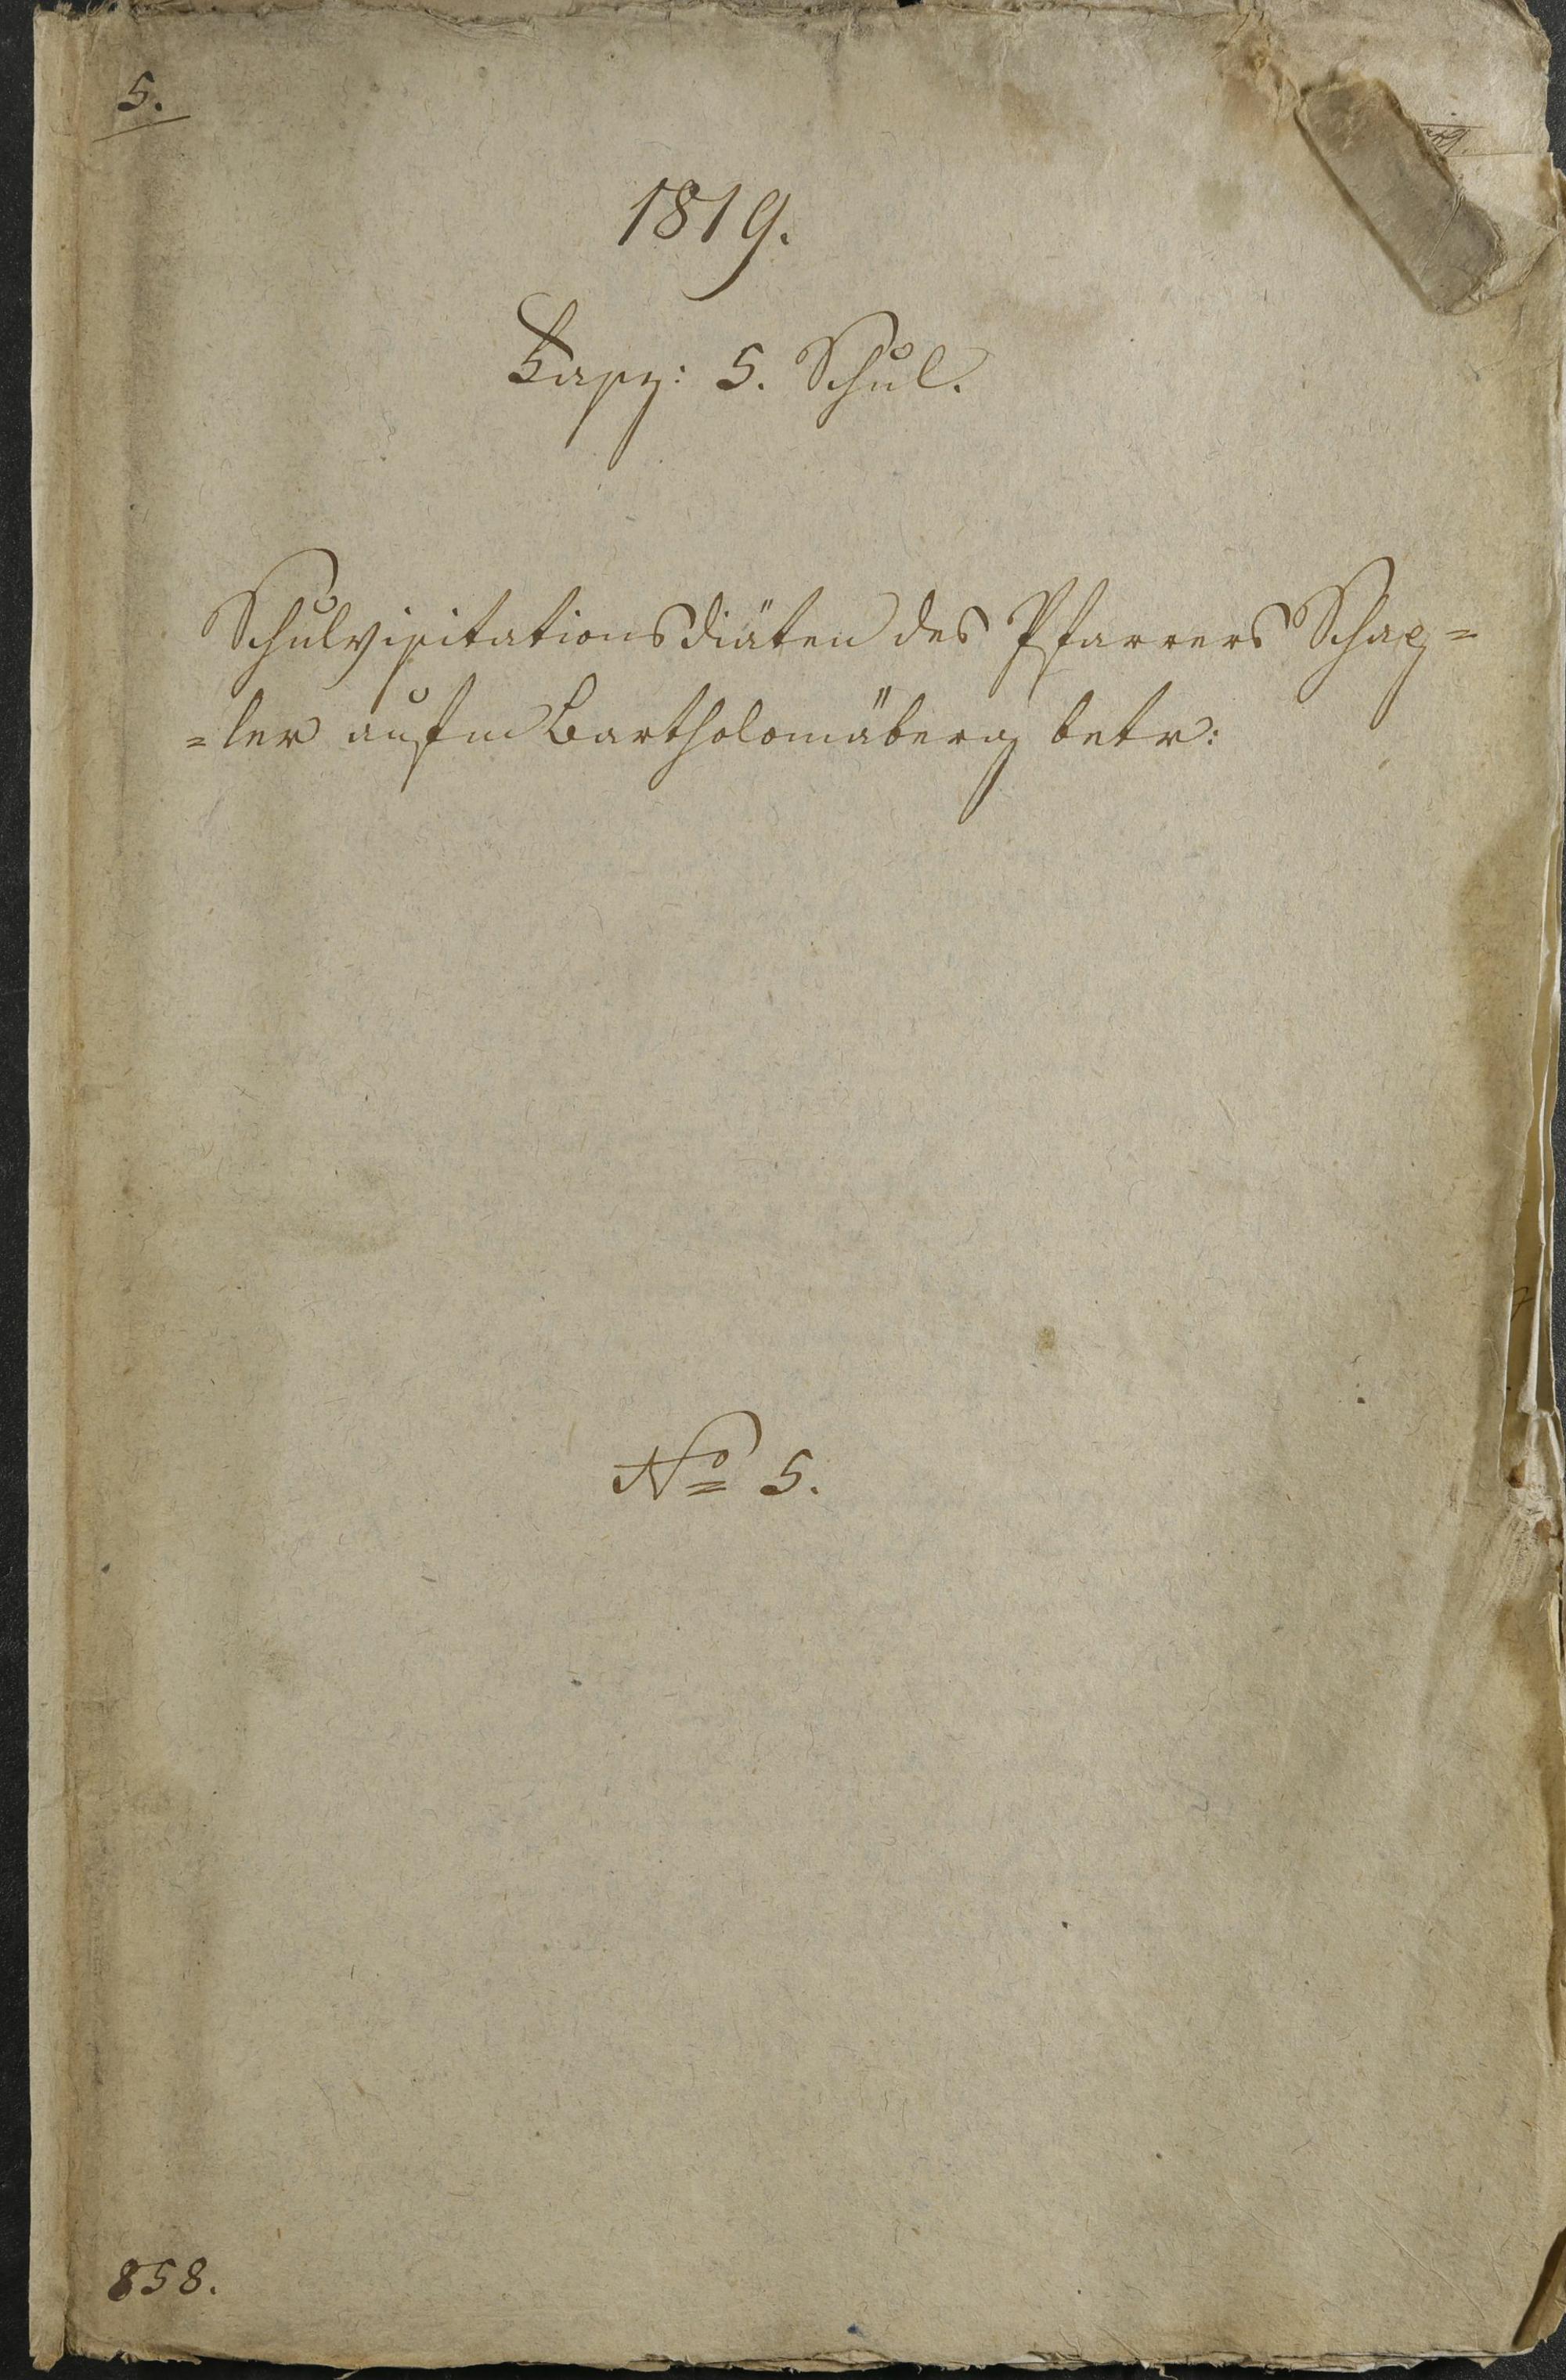 5.
1819.
Fasz: 5. Schul.
Schulvisitationsdiäten des Pfarrers
=ler aufm Bartholomäberg betr:
No 5.
858.